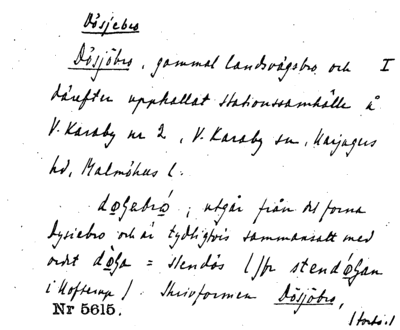 Dösjebro
Dösjöbro, gammal landsvägsbro och I
därefter uppkallat stationssamhälle å
V. Karaby nr 2, V. Karaby sn, Harjagers
hd, Malmöhus l.
døʃabró; utgår från det forna
Dysiebro och är tydligtvis sammansatt med
ordet dö̀ʃa = stendös (jfr stendö́ʃan
i Hofterup). Skrivformen Dösjöbro,
Nr 5615.
(forts.)